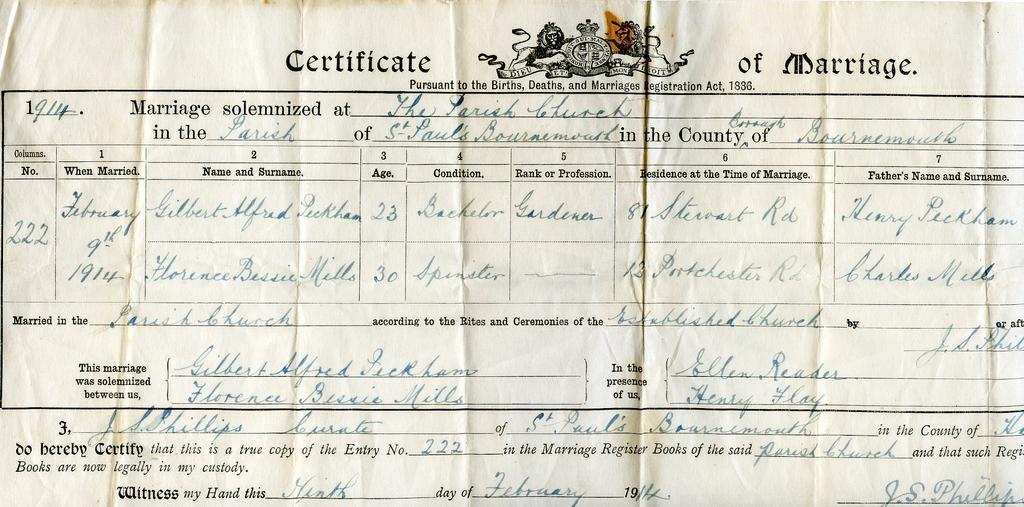 Certificate of Marriage.
DIEU ET MON DROIT
Pursuant to the Births, Deaths, and Marriages Registration Act, 1836.
1914. Marriage solemnized at The Parish Church
in the Parish of St Paul's Bournemouth in the County Borough of Bournemouth
Columns. 1 2 3 4 5 6 7
No. When Married. Name and Surname. Age. Condition. Rank or Profession. Residence at the Time of Marriage. Father's Name and Surname.
222 February 9th 1914 Gilbert Alfred Peckham 23 Bachelor Gardener 81 Stewart Rd Henry Peckham
Florence Bessie Mills 30 Spinster — 12 Portchester Rd Charles Mills
Married in the Parish Church according to the Rites and Ceremonies of the Established Church by or aft
J. S. Phil
This marriage was solemnized between us, Gilbert Alfred Peckham In the presence of us, Ellen Reader
Florence Bessie Mills Henry Flay
I, J. S. Phillips Curate of St Paul's Bournemouth in the County of Ha
do hereby Certify that this is a true copy of the Entry No. 222 in the Marriage Register Books of the said Parish Church and that such Regi
Books are now legally in my custody.
Witness my Hand this Ninth day of February 1914.
J. S. Phillip